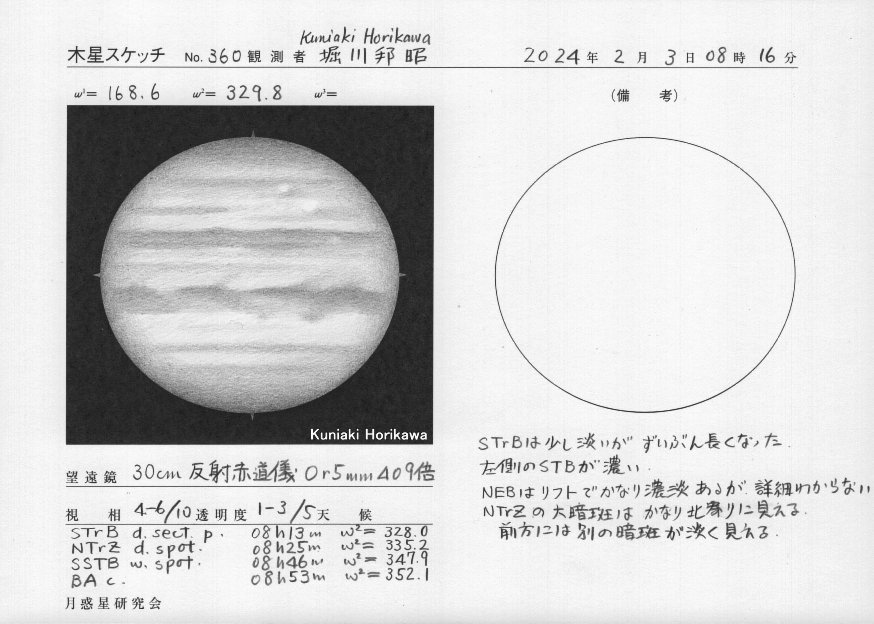 Kuniaki Horikawa
木星スケッチ No. 360 観測者 堀川邦昭 2024年 2月 3日 08時 16分
ω¹= 168.6 ω²= 329.8 ω³=
(備 考)
Kuniaki Horikawa
STrBは少し淡いが ずいぶん長くなった.
左側のSTBが濃い.
NEBはリフトでかなり濃淡あるが、詳細わからない
NTrZの大暗斑は かなり北寄りに見える.
前方には別の暗斑が淡く見える.
望遠鏡 30cm 反射赤道儀 Or5mm 409倍
視相 4-6/10 透明度 1-3/5 天候
STrB d. sect. p. 08h13m ω²= 328.0
NTrZ d. spot. 08h25m ω²= 335.2
SSTB w. spot. 08h46m ω²= 347.9
BA c. 08h53m ω²= 352.1
月惑星研究会